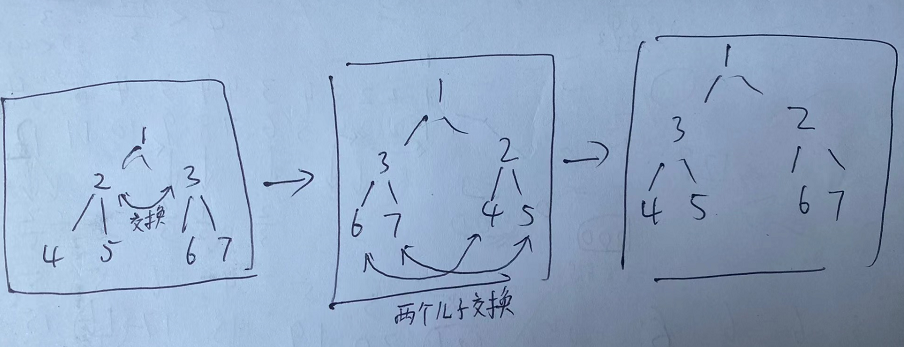 1
2 3
交换
4 5 6 7
1
3 2
6 7 4 5
两个儿子交换
1
3 2
4 5 6 7